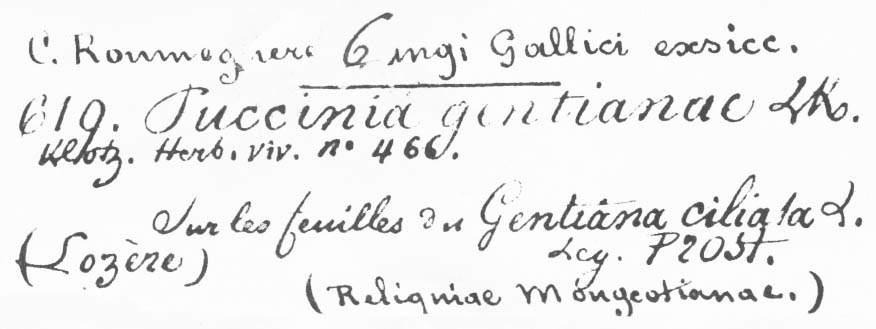 C. Roumeguere Fungi Gallici exsicc.
619. Puccinia gentianae Lk.
Klotz. Herb. viv. n° 466.
Sur les feuilles du Gentiana ciliata L.
(Lozère) Leg. PROST.
(Reliquiae Mougeotianae.)